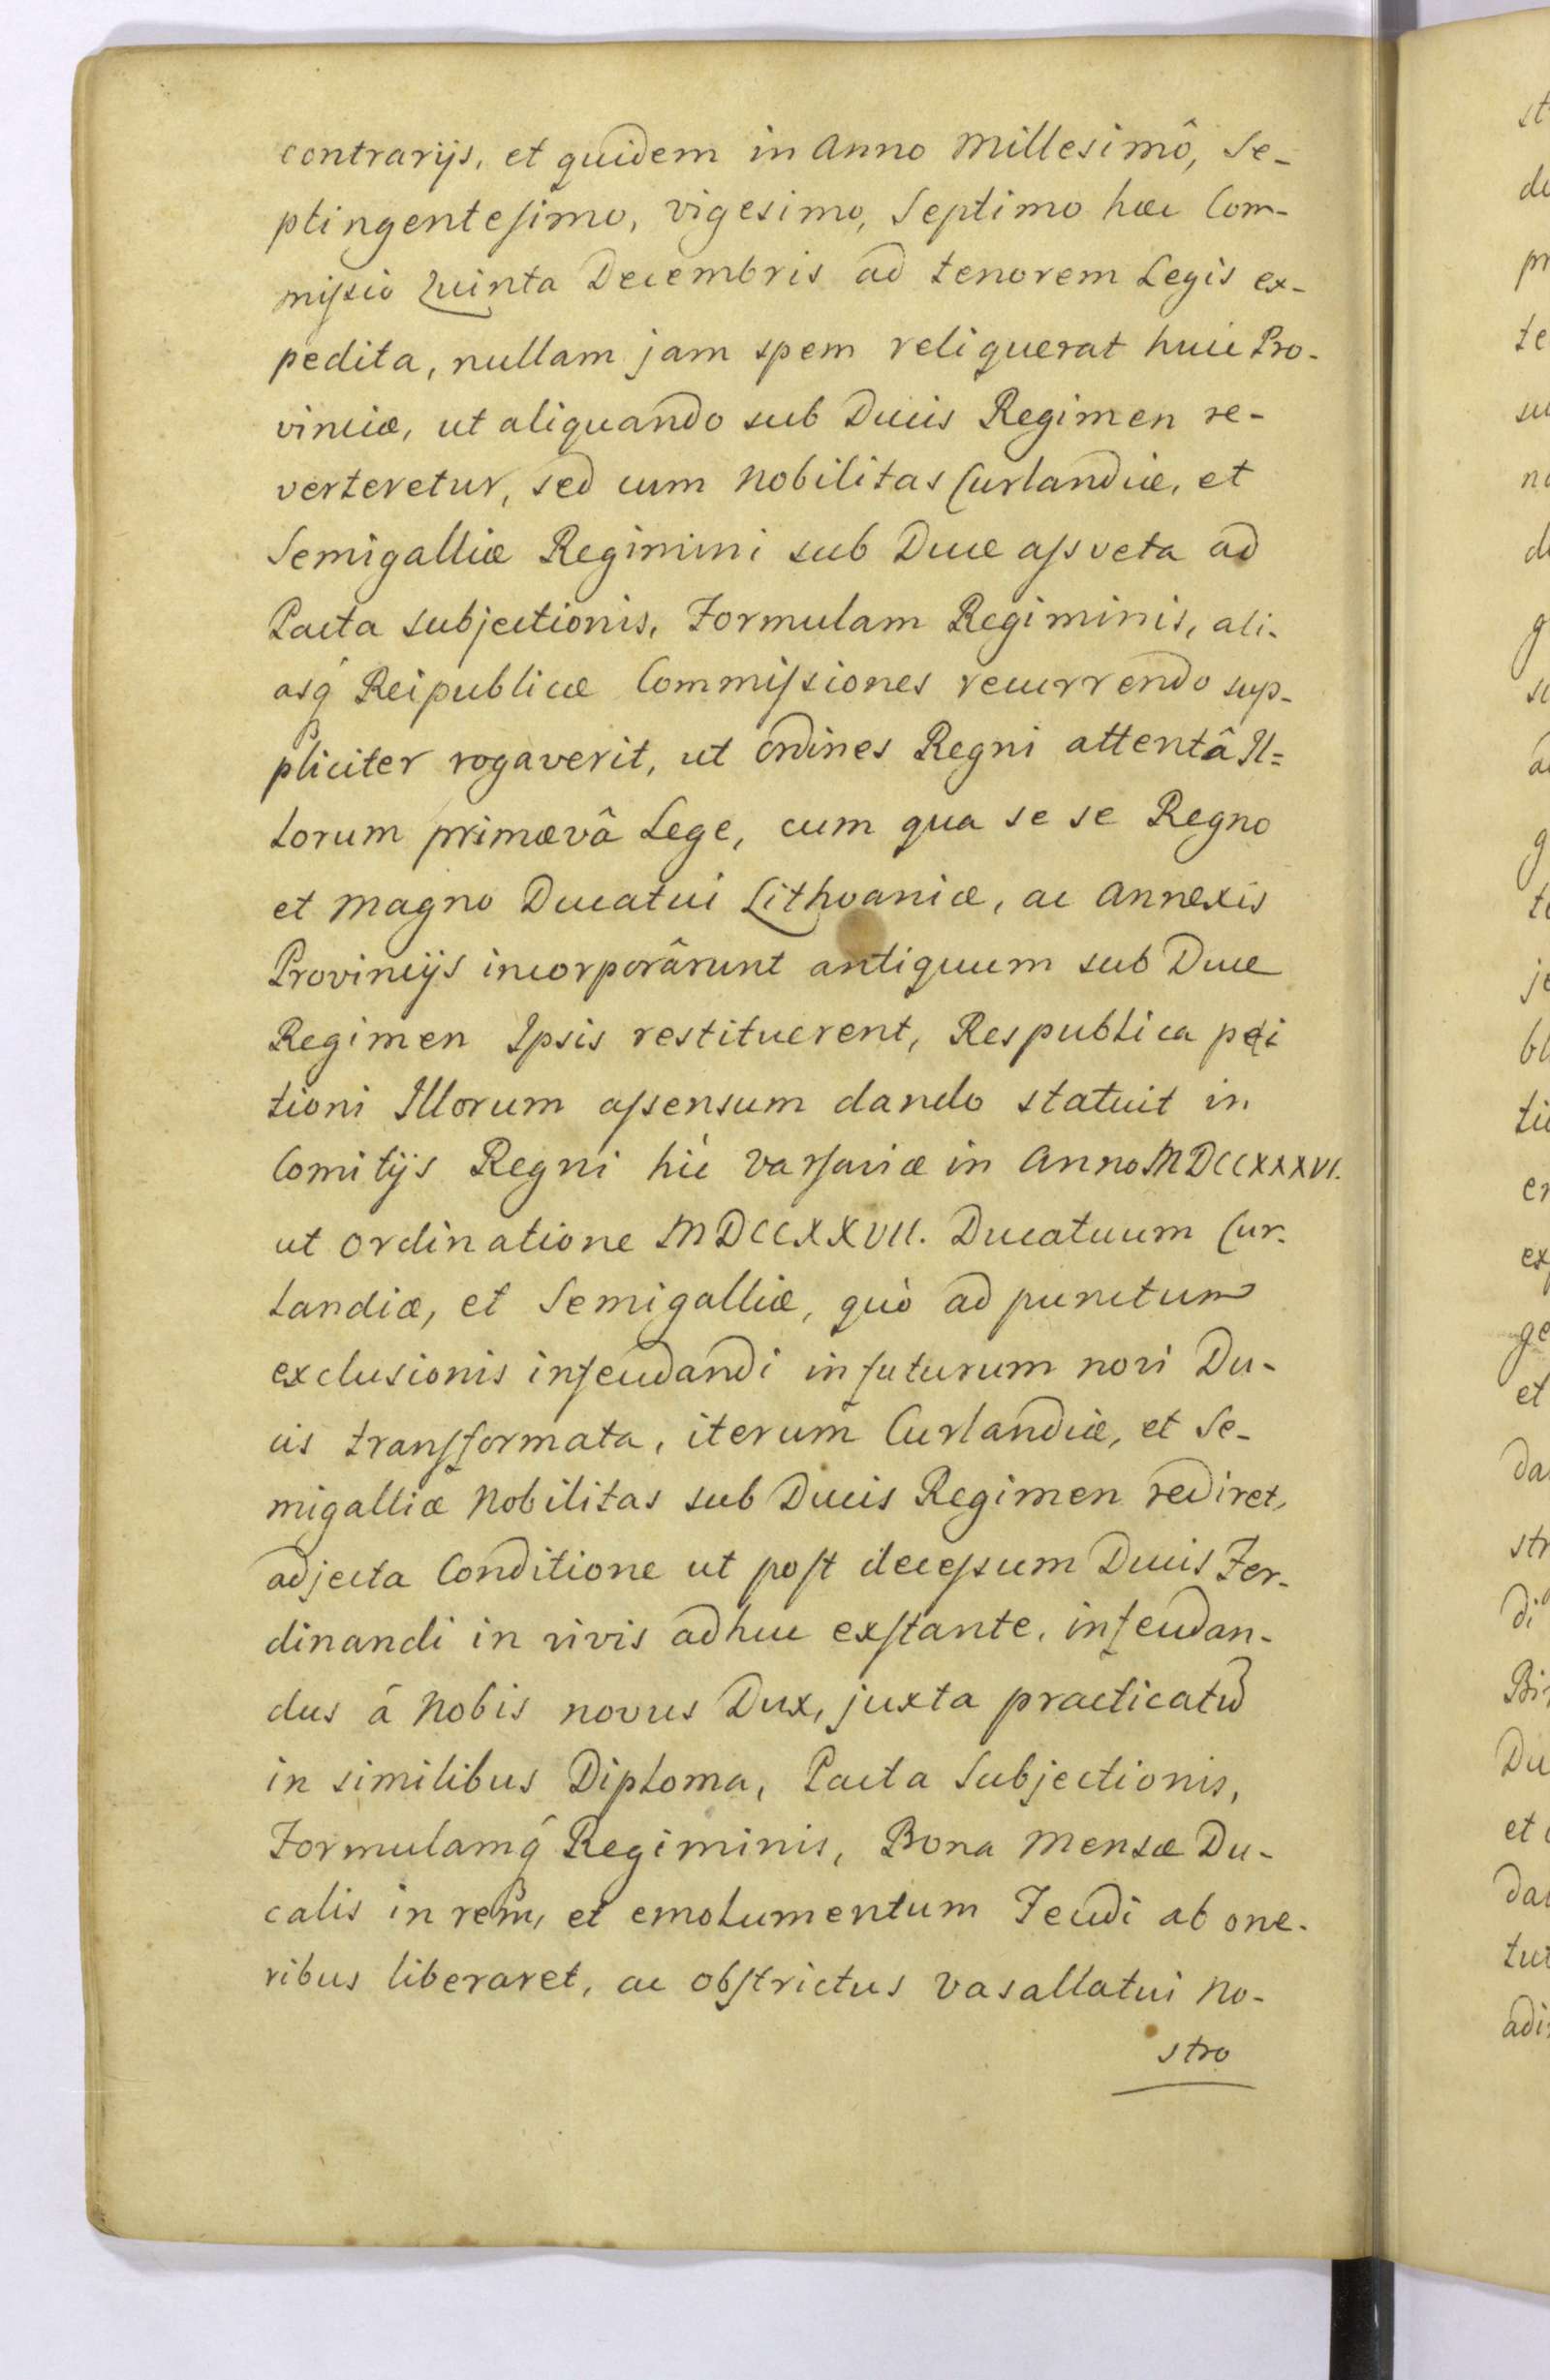 contrarijs, et quidem in Anno Millesimô, Se-
ptingentesimo, vigesimo, Septimo hæc Com-
missio Quinta Decembris ad tenorem Legis ex-
pedita, nullam jam spem reliquerat huic Pro-
vinciæ, ut aliquando sub Ducis Regimen re-
verteretur, sed cum Nobilitas Curlandiæ, et
Semigalliæ Regimini sub Duce assveta ad
Pacta subjectionis, Formulam Regiminis, ali-
asq́ Reipublicæ Commissiones recurrendo sup-
pliciter rogaverit, ut Ordines Regni attentâ Il=
lorum primævâ Lege, cum qua se se Regno
et Magno Ducatui Lithvaniæ, ac Annexis
Provincijs incorporârunt antiquum sub Duce
Regimen Ipsis restituerent, Respublica peti
tioni Illorum assensum dando statuit in
Comitijs Regni hic Varsaviæ in Anno MDCCXXXVI.
ut Ordinatione MDCCXXVII. Ducatuum Cur-
landiæ, et Semigalliæ, quò ad punctum
exclusionis infeudandi in futurum novi Du-
cis transformata, iterum Curlandiæ, et Se-
migalliæ Nobilitas sub Ducis Regimen rediret,
adjecta Conditione ut post decessum Ducis Fer-
dinandi in vivis adhuc exstante, infeudan-
dus â Nobis novus Dux, juxta practicatū
in similibus Diploma, Pacta Subjectionis,
Formulamq́ Regiminis, Bona Mensæ Du-
calis in rem, et emolumentum Feudi ab one-
ribus liberaret, ac obstrictus Vasallatui No-
stro
st
de
pr
te
su
no
d
g
su
a
g
te
je
bl
ti
er
ex
ge
et
da
str
di
Bi
Du
et
da
tur
adi